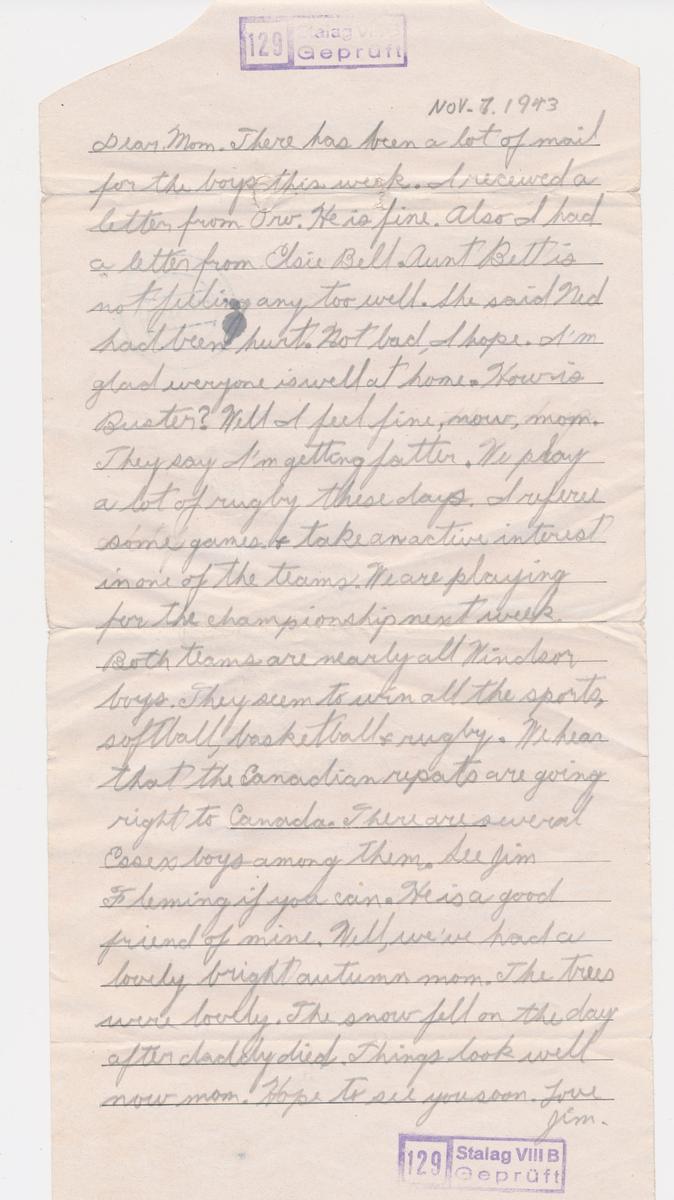 129 Stalag VIII B
Geprüft
NOV. 7. 1943
Dear Mom. There has been a lot of mail
for the boys this week. I received a
letter from Orv. He is fine. Also I had
a letter from Elsie Bell. Aunt Bett is
not feeling any too well. She said Ned
had been hurt. Not bad, I hope. I'm
glad everyone is well at home. How is
Buster? Well I feel fine, now, mom.
They say I'm getting fatter. We play
a lot of rugby these days. I referee
some games & take an active interest
in one of the teams. We are playing
for the championship next week.
Both teams are nearly all Windsor
boys. They seem to win all the sports,
softball, basketball & rugby. We hear
that the Canadian repats are going
right to Canada. There are several
Essex boys among them. See Jim
Fleming if you can. He is a good
friend of mine. Well, we've had a
lovely bright autumn mom. The trees
were lovely. The snow fell on the day
after daddy died. Things look well
now mom. Hope to see you soon. Love
Jim.
129 Stalag VIII B
Geprüft